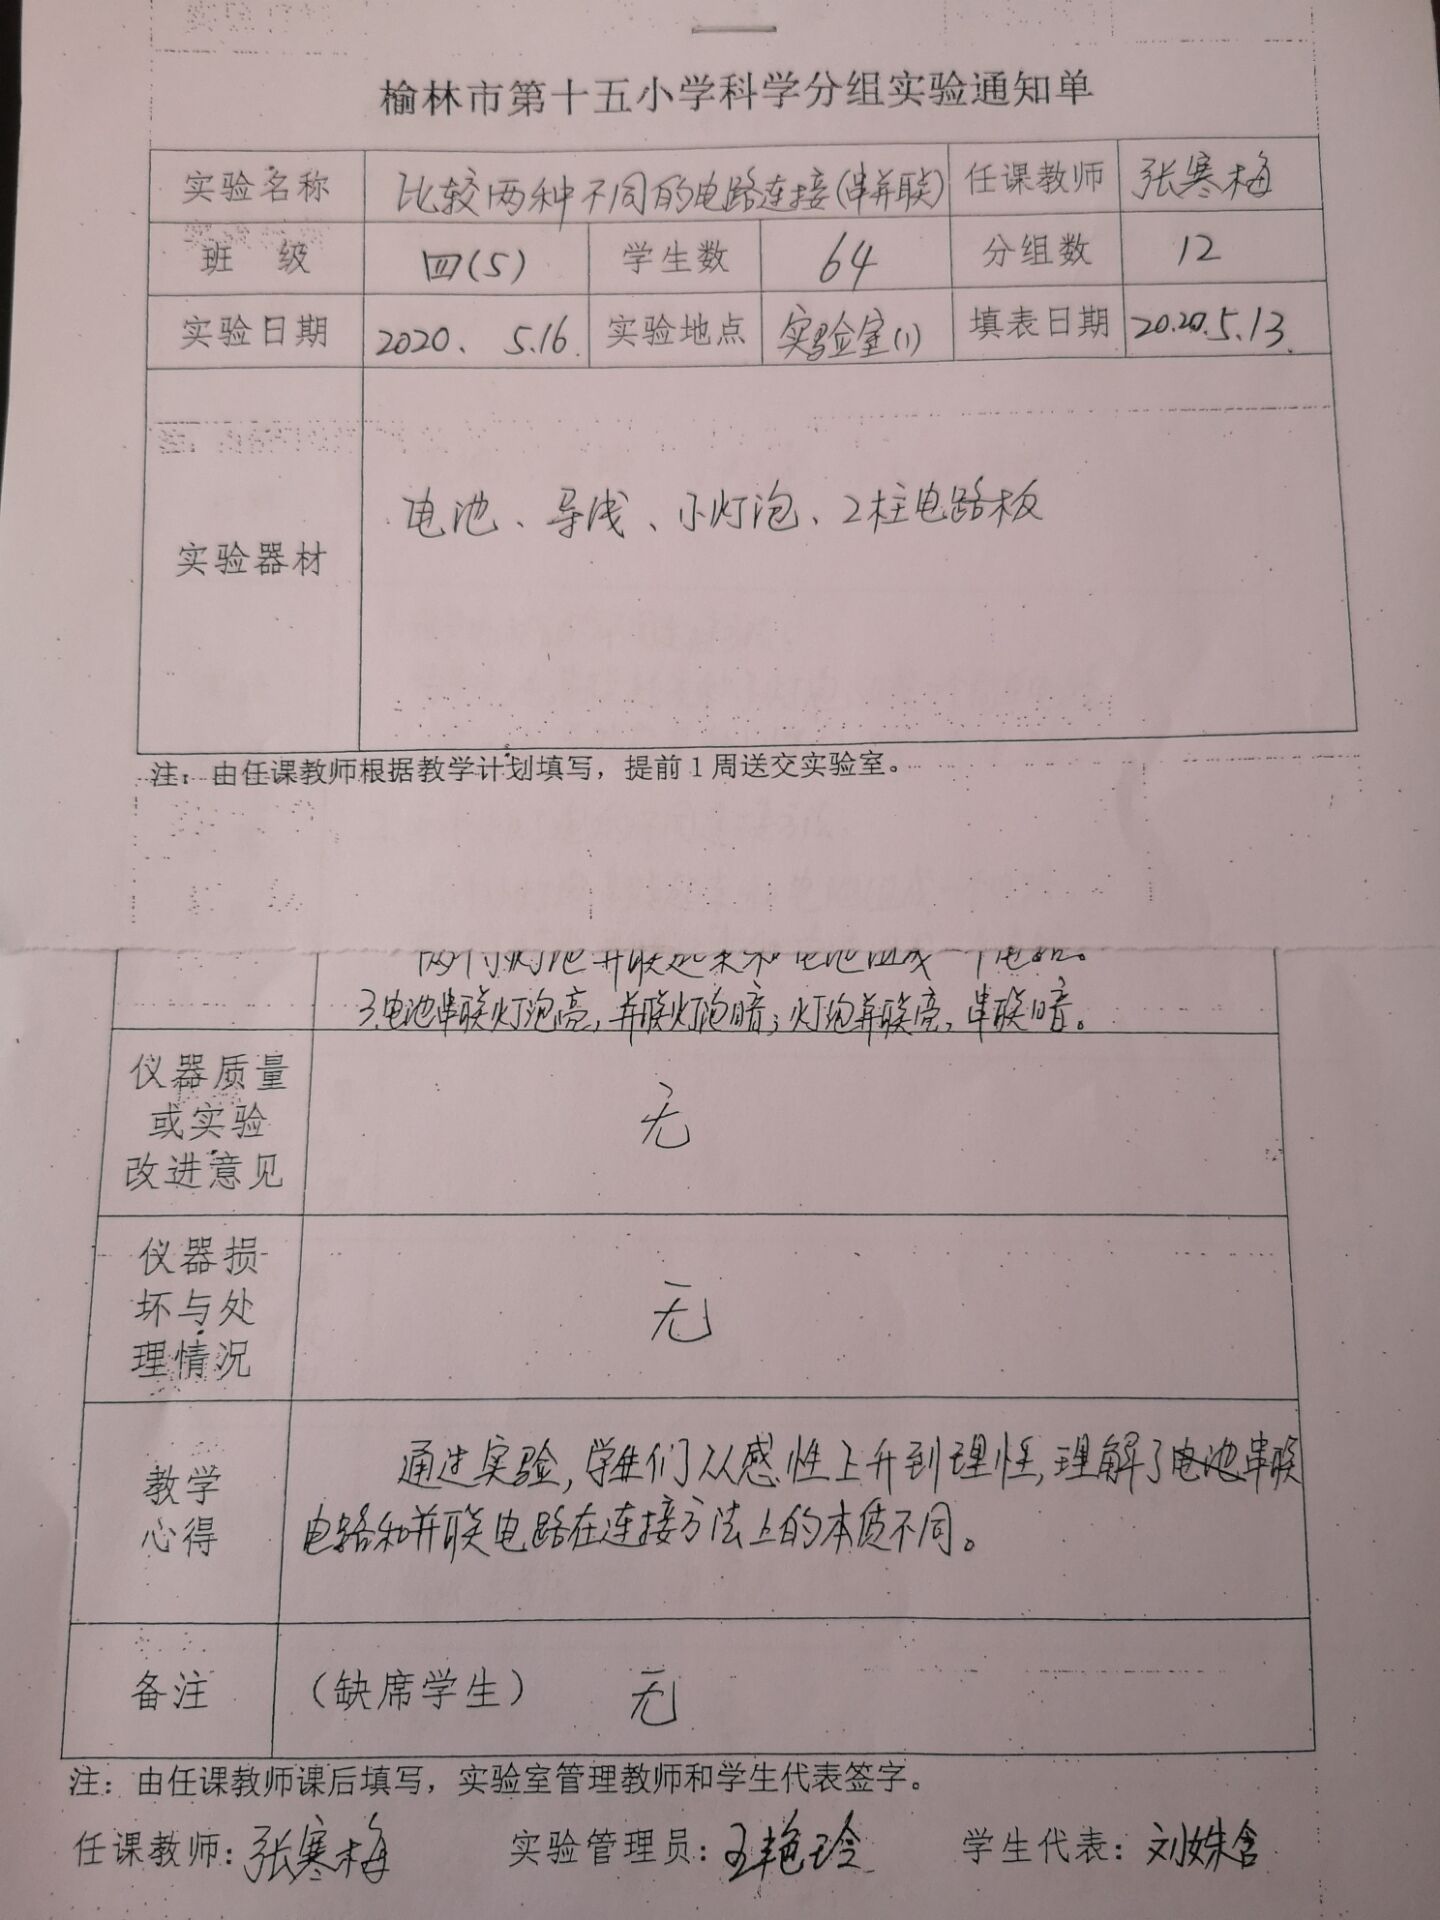 榆林市第十五小学科学分组实验通知单
实验名称 比较两种不同的电路连接(串并联) 任课教师 张寒梅
班 级 四(5) 学生数 64 分组数 12
实验日期 2020、5.16. 实验地点 实验室(1) 填表日期 2020.5.13.
电池、导线、小灯泡、2柱电路板
实验器材
注：由任课教师根据教学计划填写，提前1周送交实验室。
两个灯泡并联起来和电池组成一个电路。
3.电池串联灯泡亮,并联灯泡暗;灯泡并联亮,串联暗。
仪器质量
或实验 无
改进意见
仪器损
坏与处 无
理情况
通过实验,学生们从感性上升到理性,理解了电池串联
教学
电路和并联电路在连接方法上的本质不同。
心得
备注 (缺席学生) 无
注：由任课教师课后填写，实验室管理教师和学生代表签字。
任课教师：张寒梅 实验管理员：王艳玲 学生代表：刘姝含